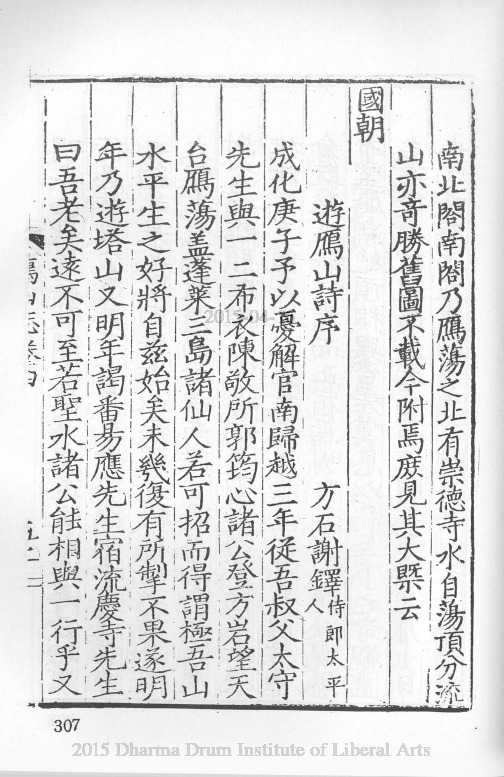 南北閣南閣乃鴈蕩之北有崇德寺水自蕩頂分流
山亦竒勝舊圖不載今附焉庻見其大槩云
國朝
遊鴈山詩序 方石謝鐸侍郎太平人
成化庚子予以憂解官南歸越三年從吾叔父太守
先生與一二布衣陳敬所郭筠心諸公登方岩望天
台鴈蕩盖蓬萊三島諸仙人若可招而得謂極吾山
水平生之好將自兹始矣未幾復有所掣不果遂明
年乃遊塔山又明年謁番昜應先生宿流慶寺先生
曰吾老矣遠不可至若聖水諸公能相與一行乎又
山志卷四
307
2015 Dharma Drum Institute of Liberal Arts